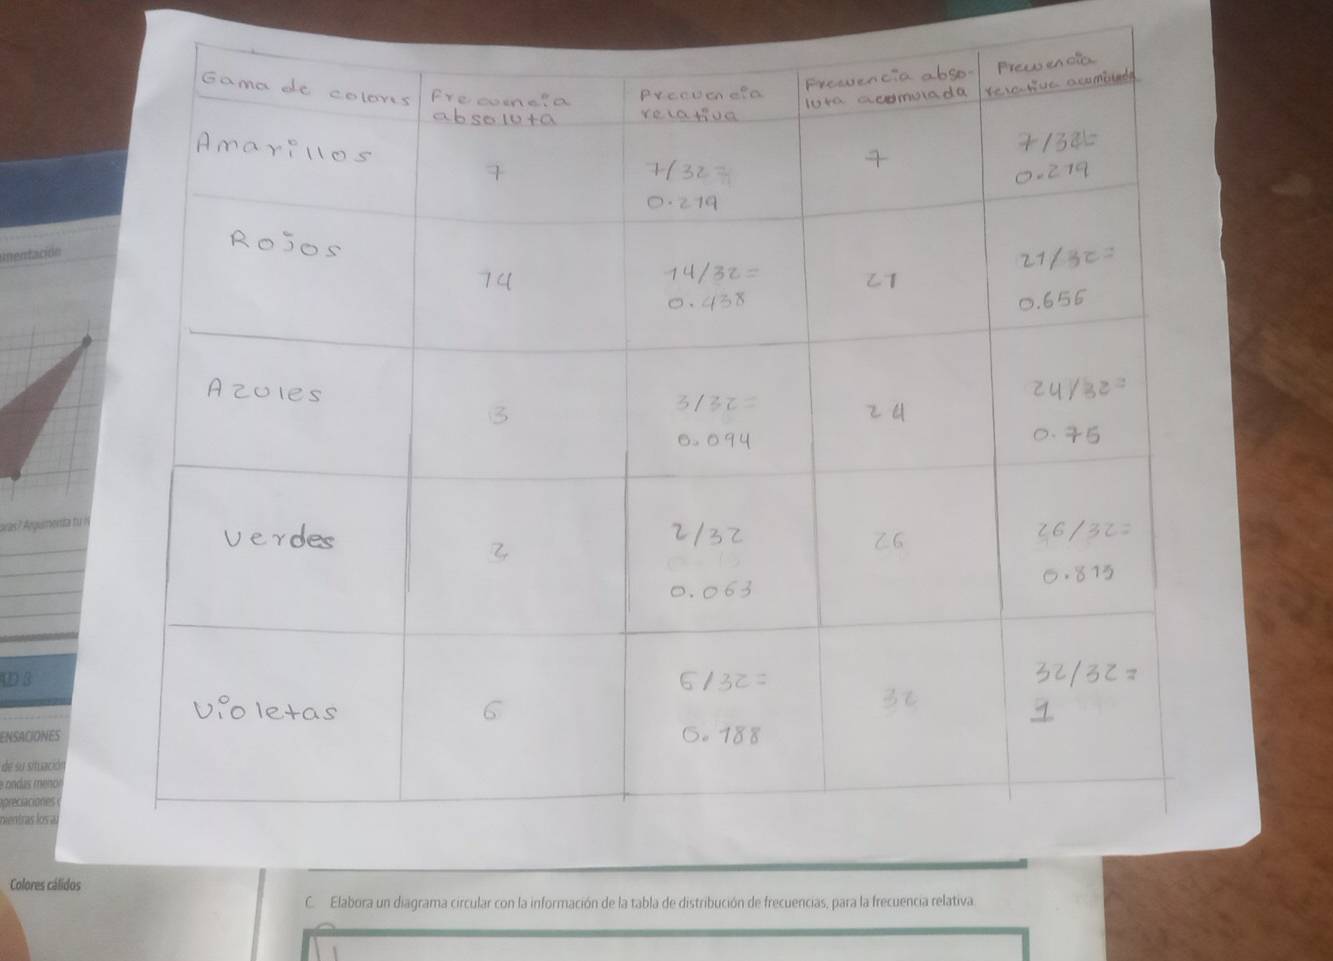 Gama de colores
Frecuencia
absoluta
Frecuencia
relativa
Frecuencia abso-
luta acomulada
Frecuencia
relativa acomulada
Amarillos
7
7/32=
0.219
7
7/32=
0.219
Rojos
14
14/32=
0.438
21
21/32=
0.656
Azules
3
3/32=
0.094
24
24/32=
0.75
verdes
2
2/32
0.063
26
26/32=
0.813
violetas
6
6/32=
0.188
32
32/32=
1
mentación
Argumenta tu
AD 8
ENSACIONES
de su situación
ondas menor
apreciaciones
mientras los a
Colores cálidos
C. Elabora un diagrama circular con la información de la tabla de distribución de frecuencias, para la frecuencia relativa.